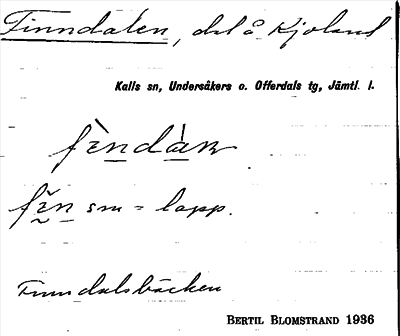 Finndalen, del å Kjoland
Kalls sn, Undersåkers o. Offerdals tg, Jämtl. l.
fìndàn
fìn sm = lapp.
Finndalsbäcken
BERTIL BLOMSTRAND 1936